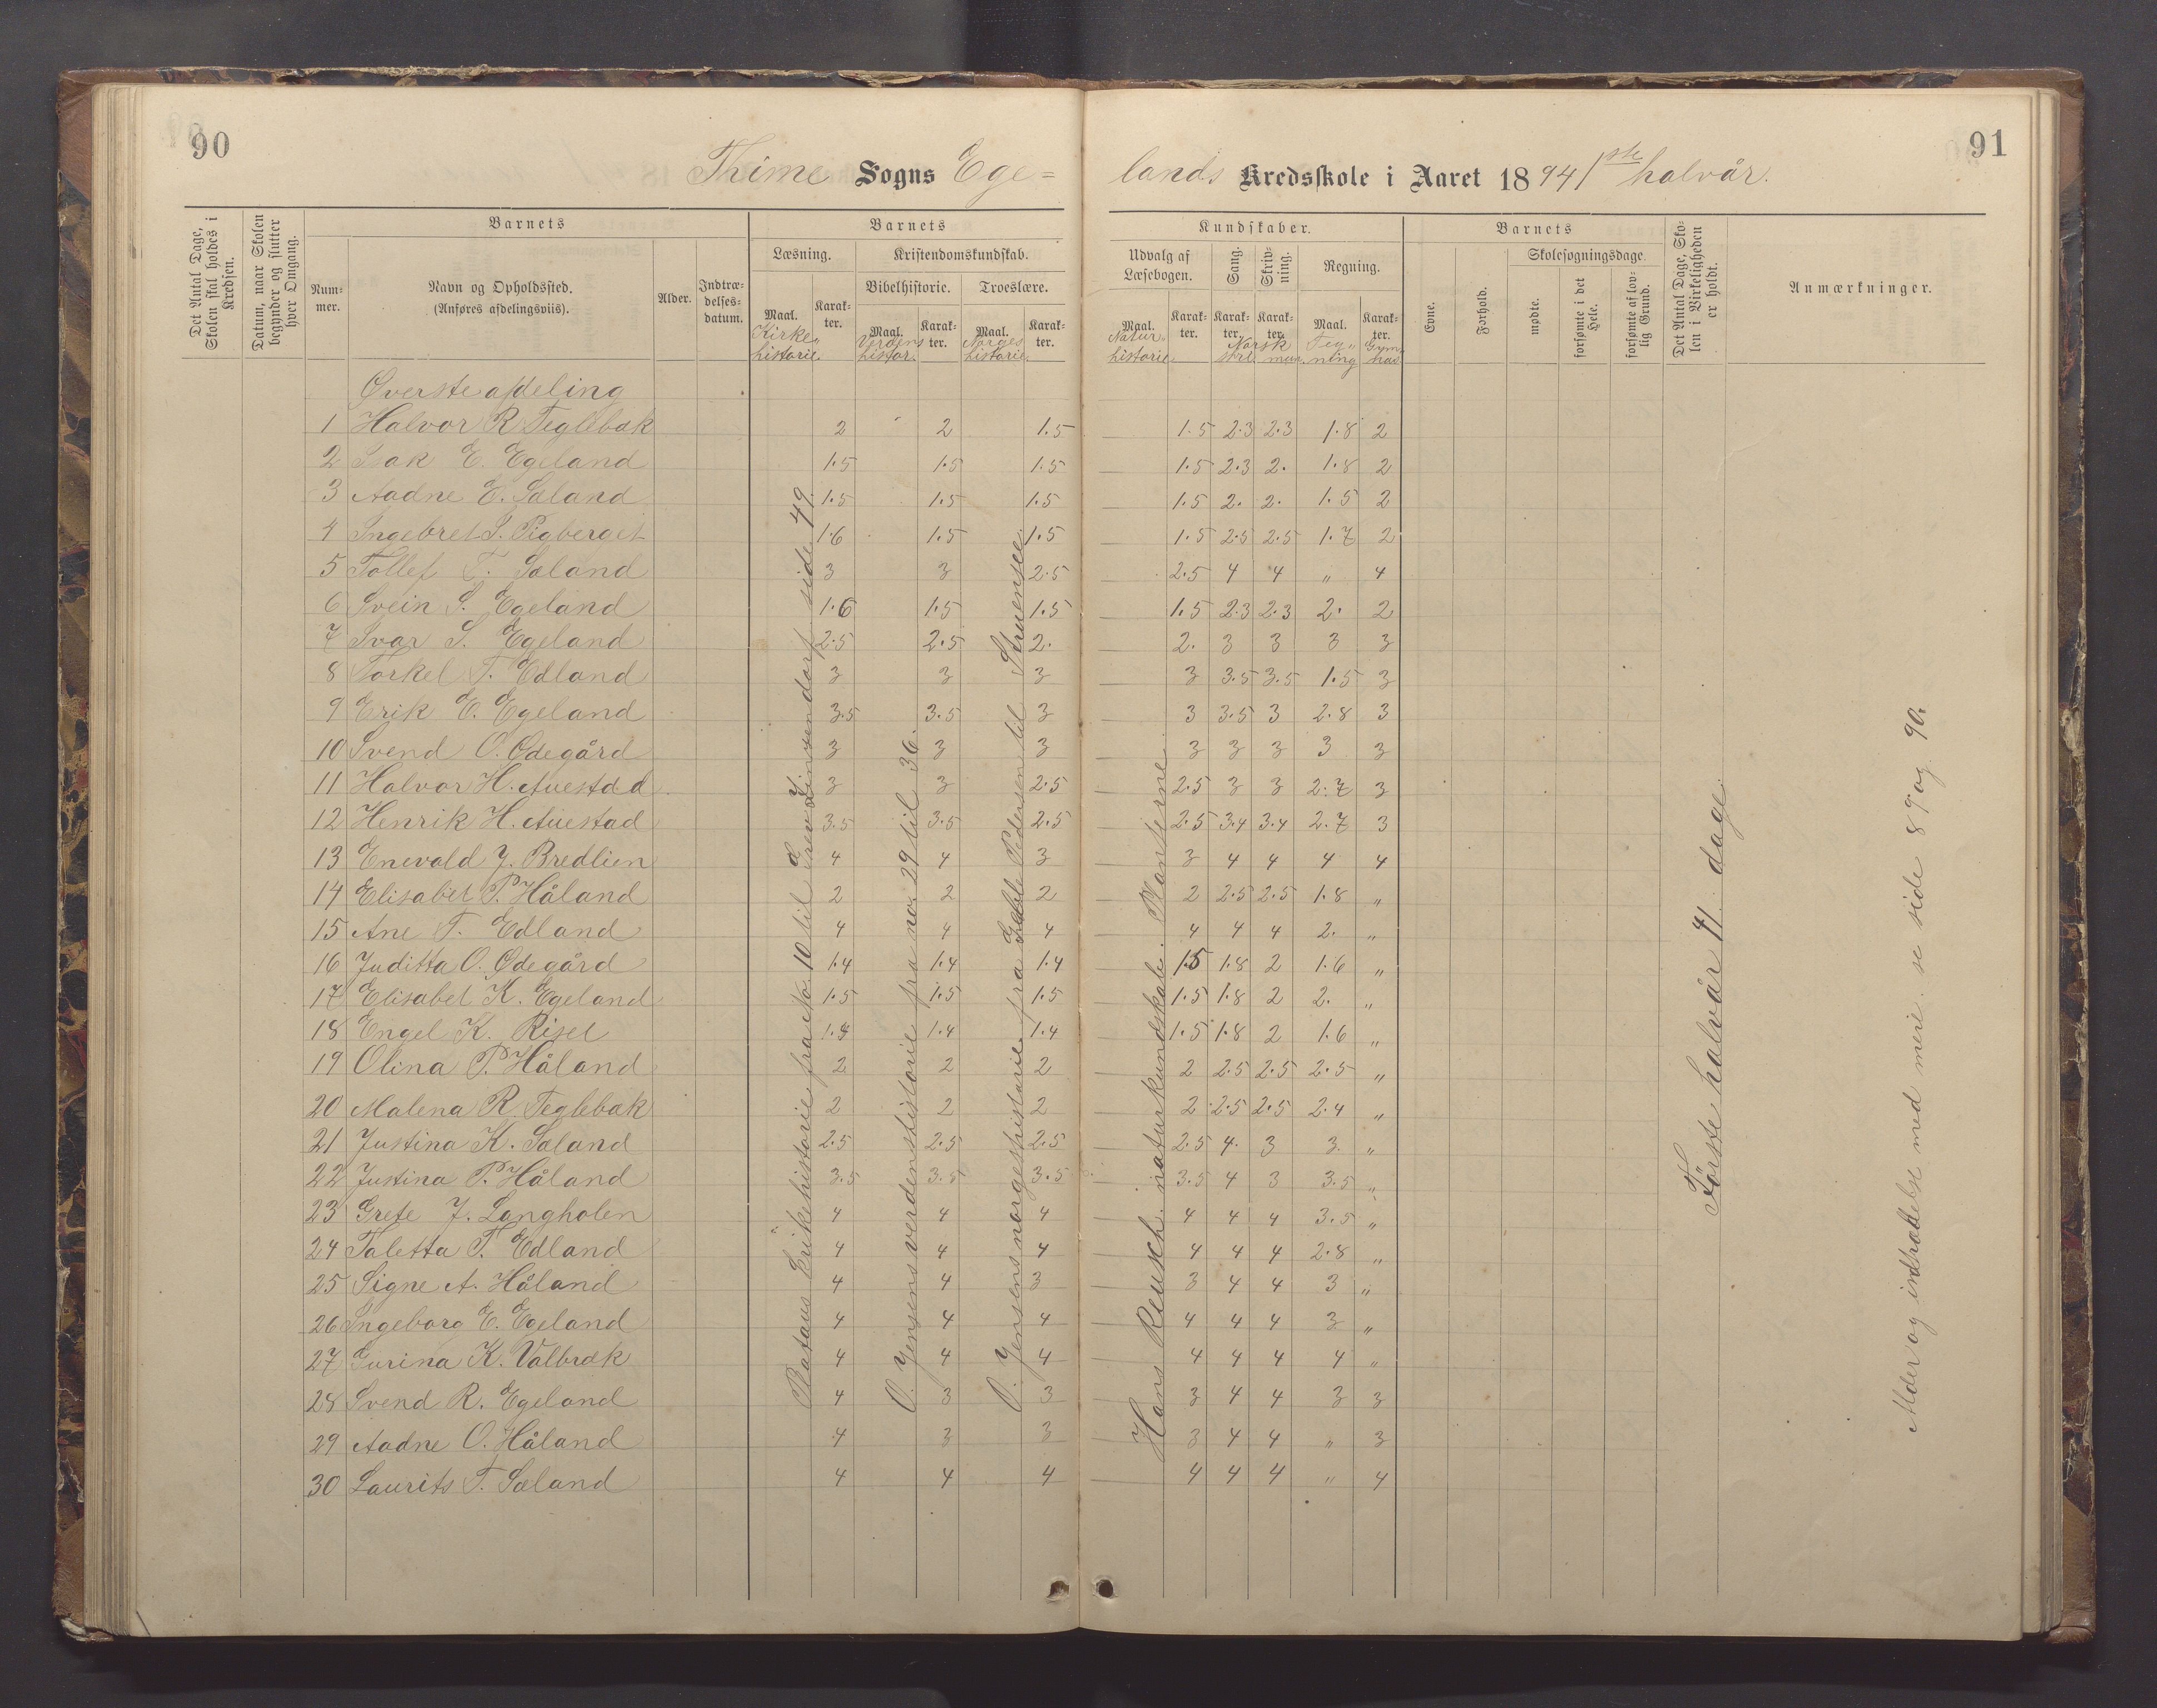 90
91
Thime Sogns Ege=
lands Kredsskole i Aaret 1894 1ste halvår.
Det Antal Dage, Skolen skal holdes i Kredsen.
Datum, naar Skolen begynder og slutter hver Omgang.
Barnets
Nummer.
Navn og Opholdssted.
(Anføres afdelingsviis).
Alder.
Indtrædelsesdatum.
Barnets
Læsning.
Kristendomskundskab.
Bibelhistorie.
Troeslære.
Maal. Karakter. Maal. Karakter. Maal. Karakter.
Kirkehistorie. Verdens histor. Norges historie.
Kundskaber.
Udvalg af Læsebogen.
Sang.
Skrivning.
Regning.
Maal. Karakter. Karakter. Karakter. Maal. Karakter.
Naturhistorie. Norsk stil mun. Tegning Gymnas
Barnets
Evne.
Forhold.
Skolesøgningsdage.
mødte.
forsømte i det Hele.
forsømte af lovlig Grund.
Det Antal Dage, Skolen i Virkeligheden er holdt.
Anmærkninger.
Øverste afdeling
1 Halvor R Teglebak 2 2 1.5 1.5 2.3 2.3 1.8 2
2 Isak E. Egeland 1.5 1.5 1.5 1.5 2.3 2. 1.8 2
3 Aadne E. Sæland 1.5 1.5 1.5 1.5 2. 2. 1.5 2
4 Ingebret S. Pigberget 1.6 1.5 1.5 1.5 2.5 2.5 1.7 2
5 Tollef T. Sæland 3 3 2.5 2.5 4 4 " 4
6 Svein S. Egeland 1.6 1.5 1.5 1.5 2.3 2.3 2. 2
7 Ivar S. Egeland 2.5 2.5 2. 2. 3 3 3 3
8 Torkel T. Edland 3 3 3 3 3.5 3.5 1.5 3
9 Erik E. Egeland 3.5 3.5 3 3 3.5 3 2.8 3
10 Svend O. Ødegård 3 3 3 3 3 3 3 3
11 Halvor H. Auestad 3 3 2.5 2.5 3 3 2.7 3
12 Henrik H. Auestad 3.5 3.5 2.5 2.5 3.4 3.4 2.7 3
13 Enevald J. Bredlien 4 4 3 3 4 4 4 4
14 Elisabet P. Håland 2 2 2 2 2.5 2.5 1.8 "
15 Ane T. Edland 4 4 4 4 4 4 2. "
16 Juditta O. Ødegård 1.4 1.4 1.4 1.5 1.8 2 1.6 "
17 Elisabet K. Egeland 1.5 1.5 1.5 1.5 1.8 2 2. "
18 Engel K. Riset 1.4 1.4 1.4 1.5 1.8 2 1.6 "
19 Olina P. Håland 2 2 2 2 2.5 2.5 2.5 "
20 Malena R Teglebak 2 2 2 2 2.5 2.5 2.4 "
21 Justina K. Sæland 2.5 2.5 2.5 2.5 4. 3 3. "
22 Justina P. Håland 3.5 3.5 3.5 3.5 4 3 3.5 "
23 Grete J. Langholen 4 4 4 4 4 4 3.5 "
24 Taletta T. Edland 4 4 4 4 4 4 2.8 "
25 Signe A. Håland 4 4 3 3 4 4 3 "
26 Ingeborg E. Egeland 4 4 4 4 4 4 3 "
27 Gurina K. Valbrak 4 4 4 4 4 4 4 "
28 Svend R. Egeland 4 3 3 3 4 4 3 3
29 Aadne O. Håland 4 3 3 3 4 4 " 3
30 Laurits T. Sæland 4 4 4 4 4 4 " 4
kirkehistorie fra No. 10 til Grev Zinzendorf side 49
O. Jensens verdenshistorie fra no. 29 til 36.
O. Jensens norgeshistorie fra Geble Pedersen til Struensee
Hans Reusch. naturkundskab. Planterne
Første halvår 41 dage.
Alder og indtrædelse med mere. se side 89 og 90.